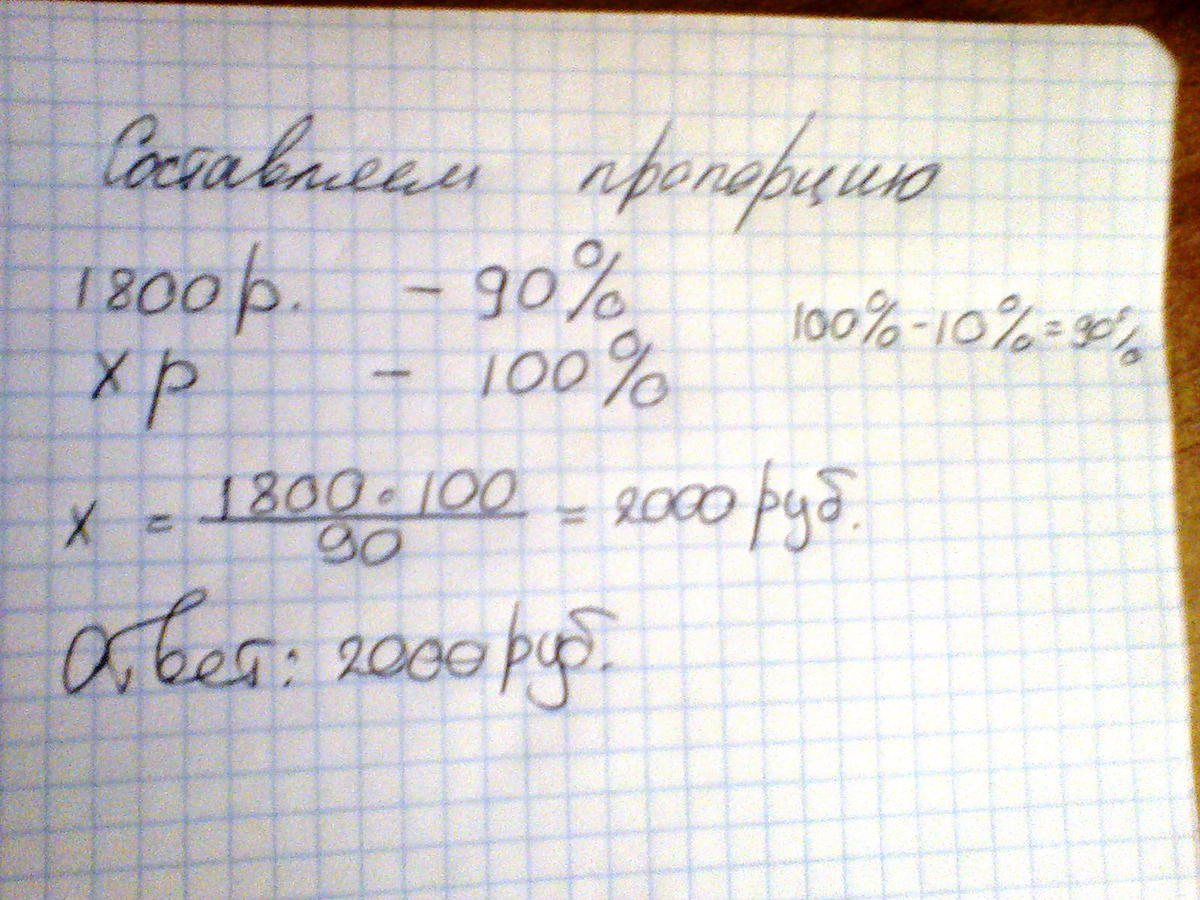 Составляем пропорцию
1800 р. - 90%
100% - 10% = 90%
х р - 100%
х = 1800 · 100 / 90 = 2000 руб.
Ответ: 2000 руб.